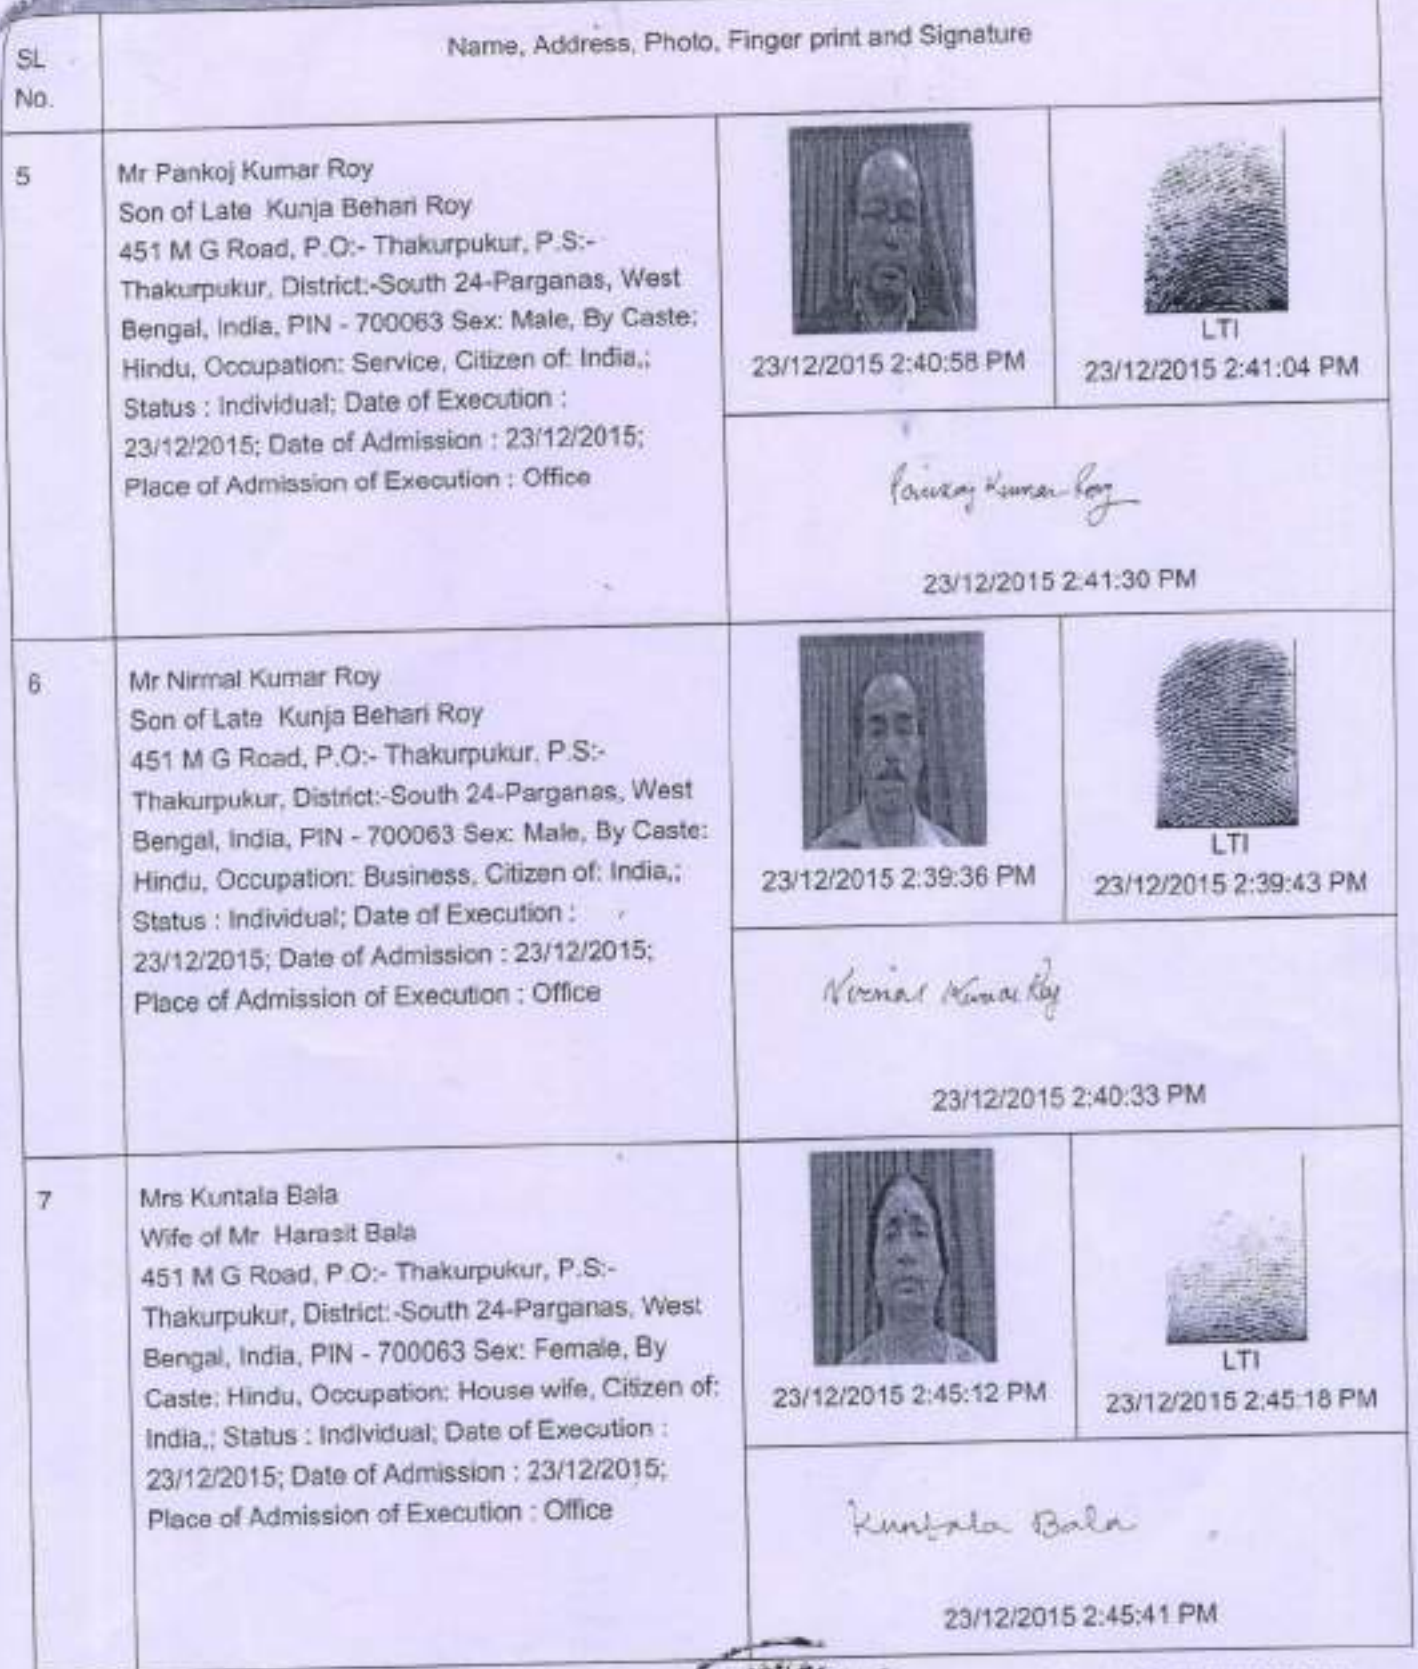 SL
No.
Name, Address, Photo, Finger print and Signature
5
Mr Pankoj Kumar Roy
Son of Late Kunja Behari Roy
451 M G Road, P.O:- Thakurpukur, P.S:-
Thakurpukur, District:-South 24-Parganas, West
Bengal, India, PIN - 700063 Sex: Male, By Caste:
Hindu, Occupation: Service, Citizen of: India,;
Status : Individual; Date of Execution :
23/12/2015; Date of Admission : 23/12/2015;
Place of Admission of Execution : Office
23/12/2015 2:40:58 PM
LTI
23/12/2015 2:41:04 PM
Pankaj Kumar Roy
23/12/2015 2:41:30 PM
6
Mr Nirmal Kumar Roy
Son of Late Kunja Behari Roy
451 M G Road, P.O:- Thakurpukur, P.S:-
Thakurpukur, District:-South 24-Parganas, West
Bengal, India, PIN - 700063 Sex: Male, By Caste:
Hindu, Occupation: Business, Citizen of: India,;
Status : Individual; Date of Execution :
23/12/2015; Date of Admission : 23/12/2015;
Place of Admission of Execution : Office
23/12/2015 2:39:36 PM
LTI
23/12/2015 2:39:43 PM
Nirmal Kumar Roy
23/12/2015 2:40:33 PM
7
Mrs Kuntala Bala
Wife of Mr Harasit Bala
451 M G Road, P.O:- Thakurpukur, P.S:-
Thakurpukur, District:-South 24-Parganas, West
Bengal, India, PIN - 700063 Sex: Female, By
Caste: Hindu, Occupation: House wife, Citizen of:
India,; Status : Individual; Date of Execution :
23/12/2015; Date of Admission : 23/12/2015;
Place of Admission of Execution : Office
23/12/2015 2:45:12 PM
LTI
23/12/2015 2:45:18 PM
Kuntala Bala
23/12/2015 2:45:41 PM